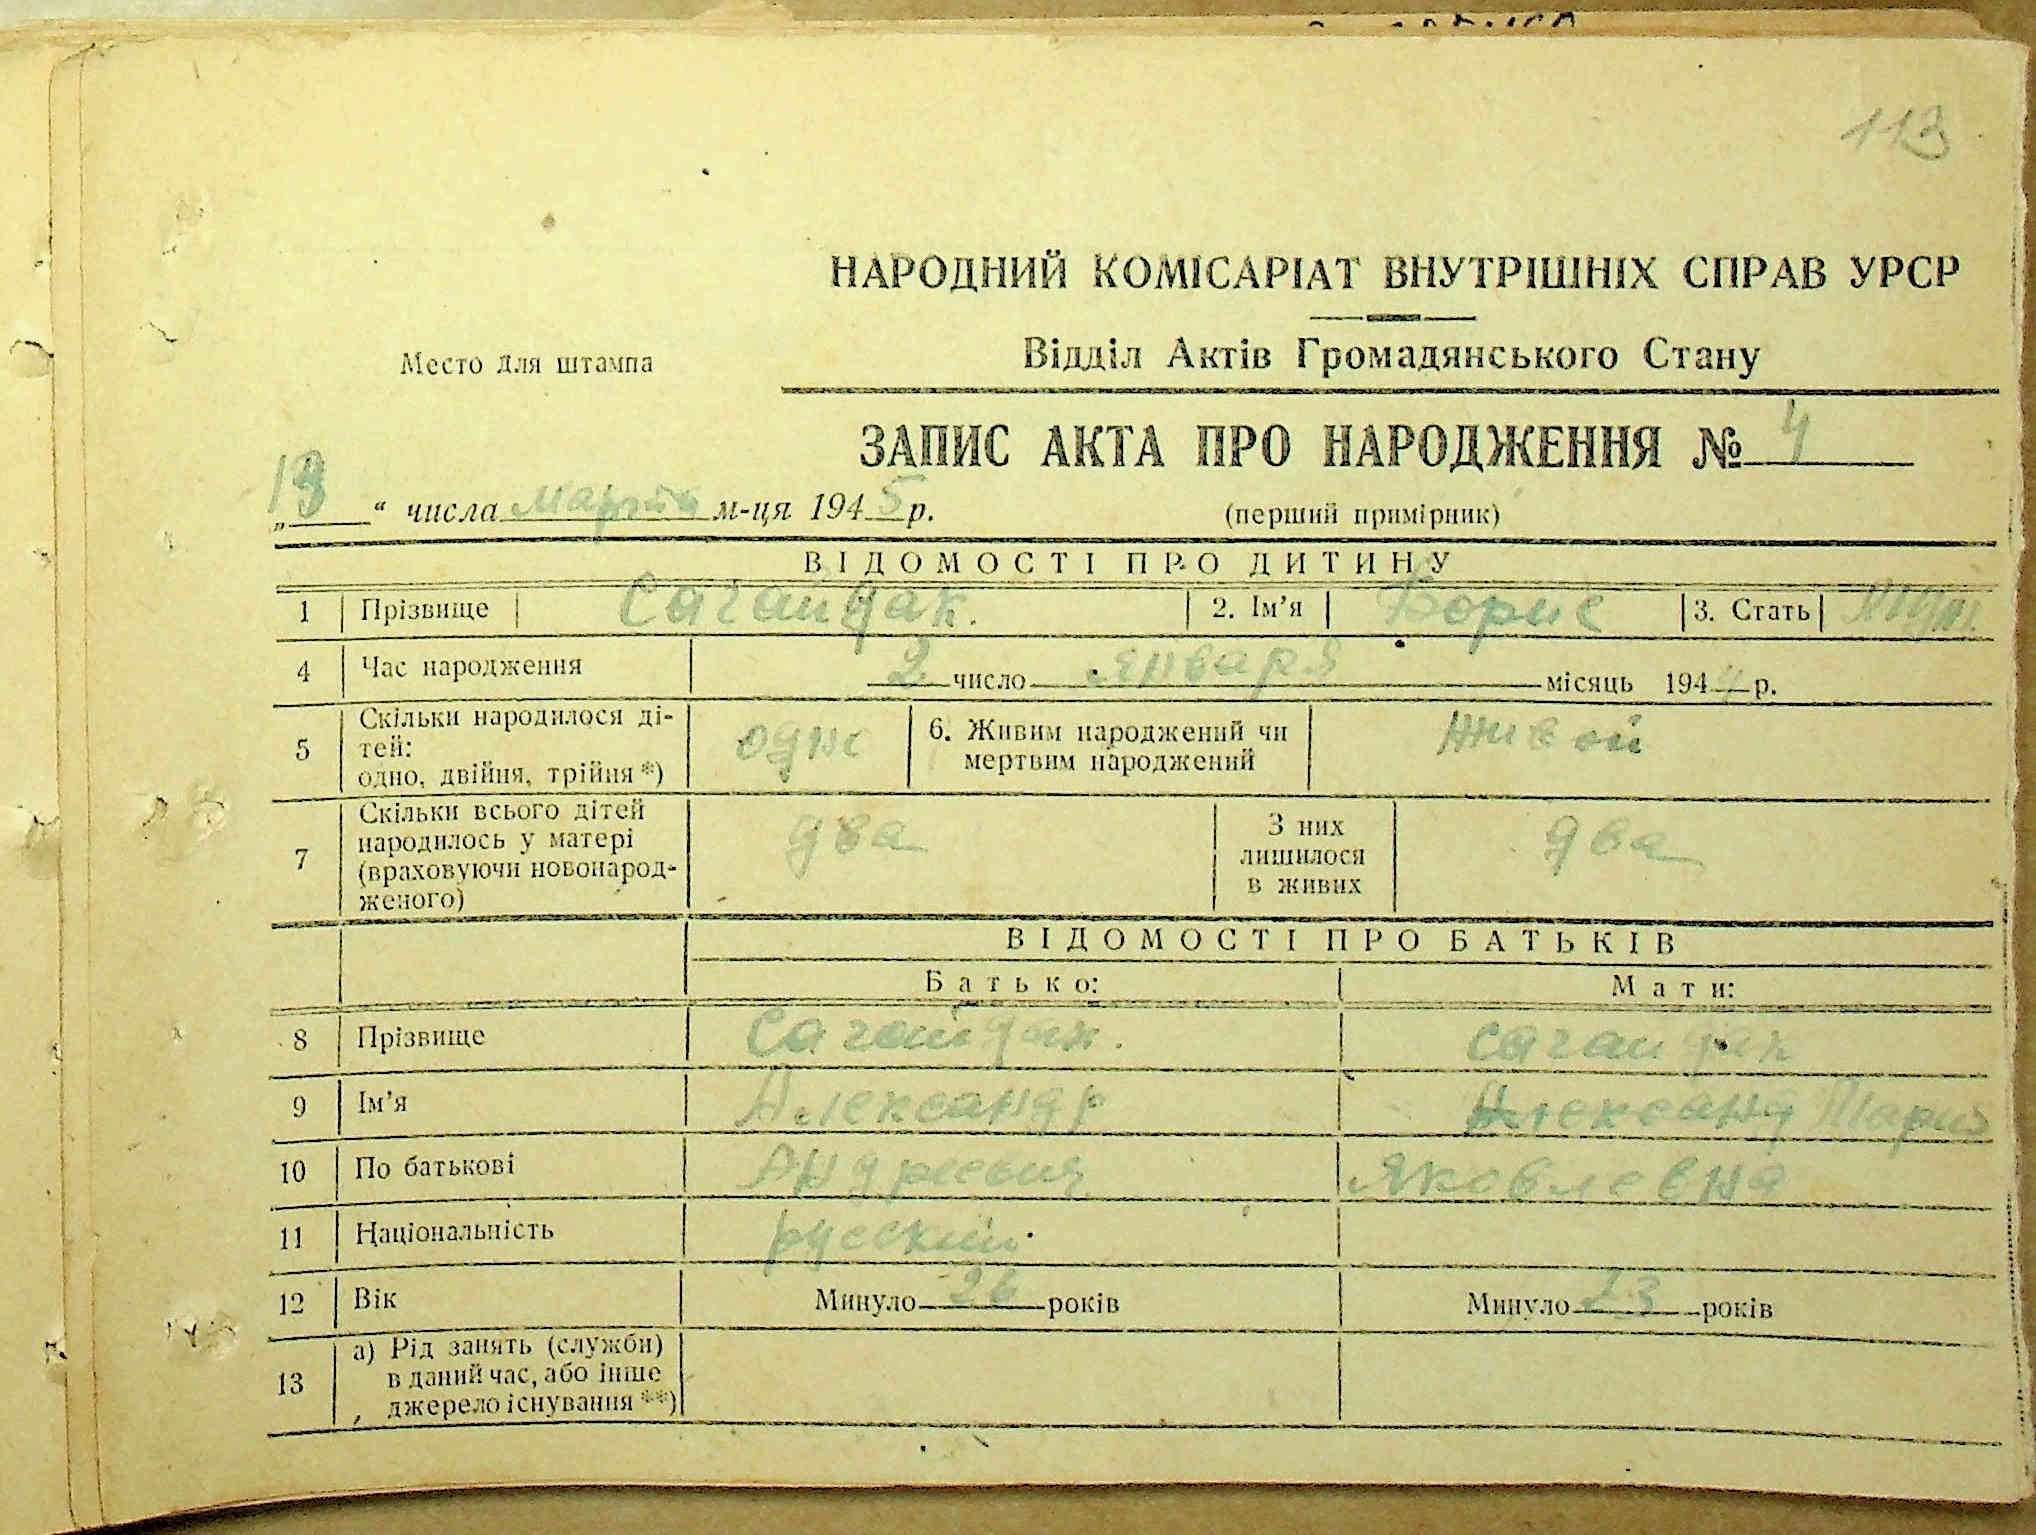 113
НАРОДНИЙ КОМІСАРІАТ ВНУТРІШНІХ СПРАВ УРСР
Место для штампа
Відділ Актів Громадянського Стану
ЗАПИС АКТА ПРО НАРОДЖЕННЯ № 4
„ “ числа марта м-ця 1945 р.
(перший примірник)
ВІДОМОСТІ ПРО ДИТИНУ
1 Прізвище Сагайдак. 2. Ім’я Борис 3. Стать муж.
4 Час народження 2 число января місяць 1944 р.
5 Скільки народилося ді-
тей:
одно, двійня, трійня *)
6. Живим народжений чи
мертвим народжений
живой
7 Скільки всього дітей
народилось у матері
(враховуючи новонарод-
женого)
два
З них
лишилося
в живих
два
ВІДОМОСТІ ПРО БАТЬКІВ
Батько: Мати:
8 Прізвище Сагайдак. Сагайдак
9 Ім’я Александр Александ Мария
10 По батькові Андреевич Яковлевна
11 Національність русский.
12 Вік Минуло 26 років Минуло 23 років
13 а) Рід занять (служби)
в даний час, або інше
джерело існування **)